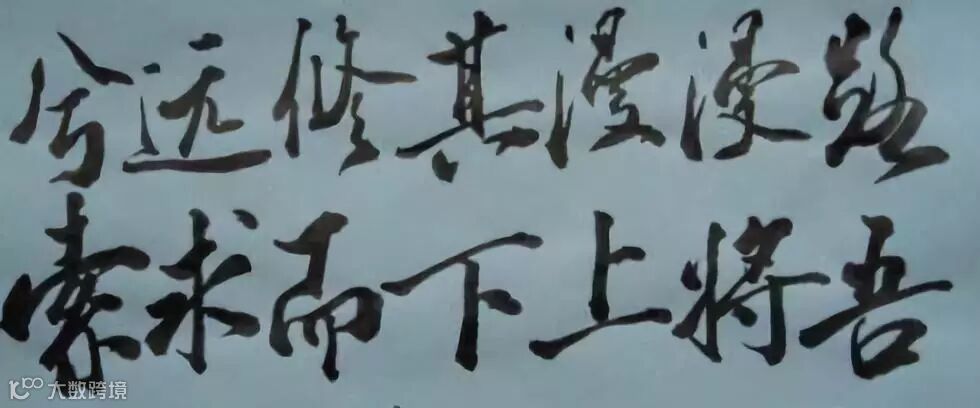 路漫漫其修远兮
吾将上下而求索
大数跨境